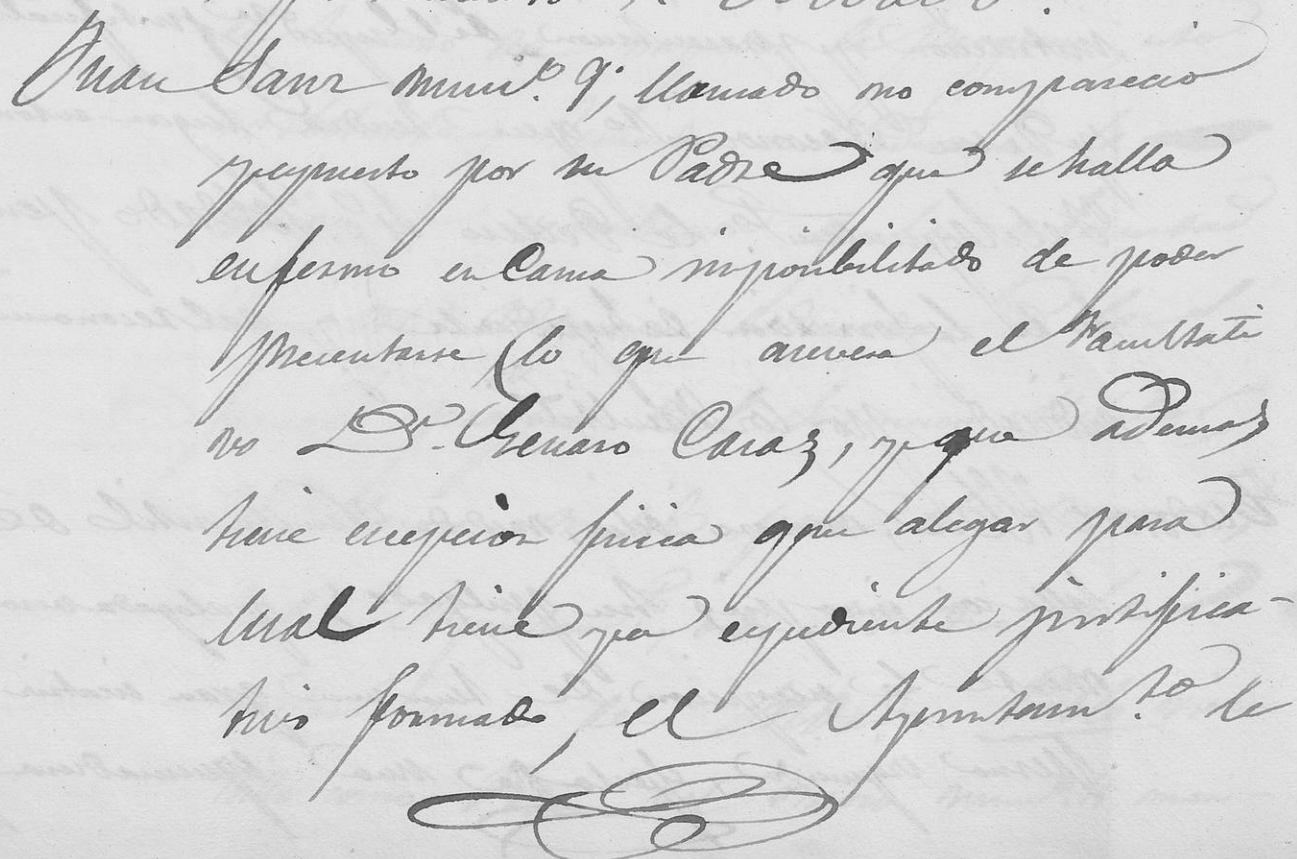 Juan Sanz num.º 9; llamado no comparecio
y espuesto por su Padre que se halla
enfermo en Cama imposibilitado de poder
presentarse (lo que asevera el Facultati
vo D.n Genaro Caraz, y que ademas
tiene escepcion fisica que alegar para
lo cual tiene ya espediente justifica-
tivo formado, el Ayuntam.to le